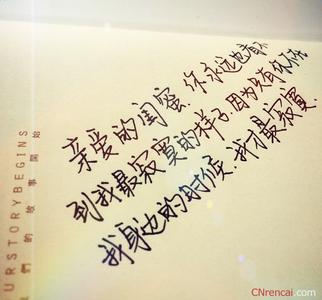 亲爱的闺蜜,你永远也看不
到我最寂寞的样子,因为只有你不在
我身边的时候,我才最寂寞.
URSTORYBEGINS
們的故事開始
CNrencai.com